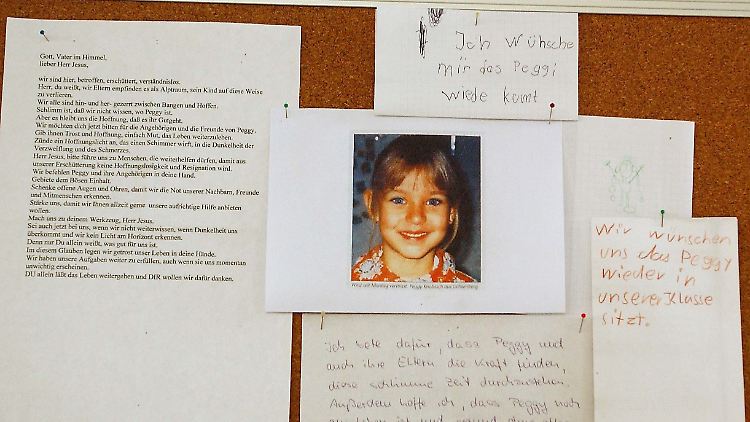 Gott, Vater im Himmel,
lieber Herr Jesus,
wir sind hier, betroffen, erschüttert, verständnislos.
Herr, du weißt, wir Eltern empfinden es als Alptraum, sein Kind auf diese Weise
zu verlieren.
Wir alle sind hin- und her- gezerrt zwischen Bangen und Hoffen.
Schlimm ist, daß wir nicht wissen, wo Peggy ist.
Aber es bleibt uns die Hoffnung, daß es ihr Gutgeht.
Wir möchten dich jetzt bitten für die Angehörigen und die Freunde von Peggy.
Gib ihnen Trost und Hoffnung, einfach Mut, das Leben weiterzuleben.
Zünde ein Hoffnungslicht an, das einen Schimmer wirft, in die Dunkelheit der
Verzweiflung und des Schmerzes.
Herr Jesus, bitte führe uns zu Menschen, die weiterhelfen dürfen, damit aus
unserer Erschütterung keine Hoffnungslosigkeit und Resignation wird.
Wir befehlen Peggy und ihre Angehörigen in deine Hand.
Gebiete dem Bösen Einhalt.
Schenke offene Augen und Ohren, damit wir die Not unserer Nachbarn, Freunde
und Mitmenschen erkennen.
Stärke uns, damit wir Ihnen allzeit gerne unsere aufrichtige Hilfe anbieten
wollen.
Mach uns zu deinem Werkzeug, Herr Jesus.
Sei auch jetzt bei uns, wenn wir nicht weiterwissen, wenn Dunkelheit uns
überkommt und wir kein Licht am Horizont erkennen.
Denn nur Du allein weißt, was gut für uns ist.
Im diesem Glauben legen wir getrost unser Leben in deine Hände.
Wir haben unsere Aufgaben weiter zu erfüllen, auch wenn sie uns momentan
unwichtig erscheinen.
DU allein läßt das Leben weitergehen und DIR wollen wir dafür danken.
Ich wünsche
mir das Peggi
wiede komt
Wird seit Montag vermisst: Peggy Knobloch aus Lichtenberg
Wir wünschen
uns das Peggy
wieder in
unserer Klasse
sitzt.
Ich bete dafür, dass Peggy und
auch ihre Eltern die Kraft finden,
diese schlimme Zeit durchzustehen.
Außerdem hoffe ich, dass Peggy noch